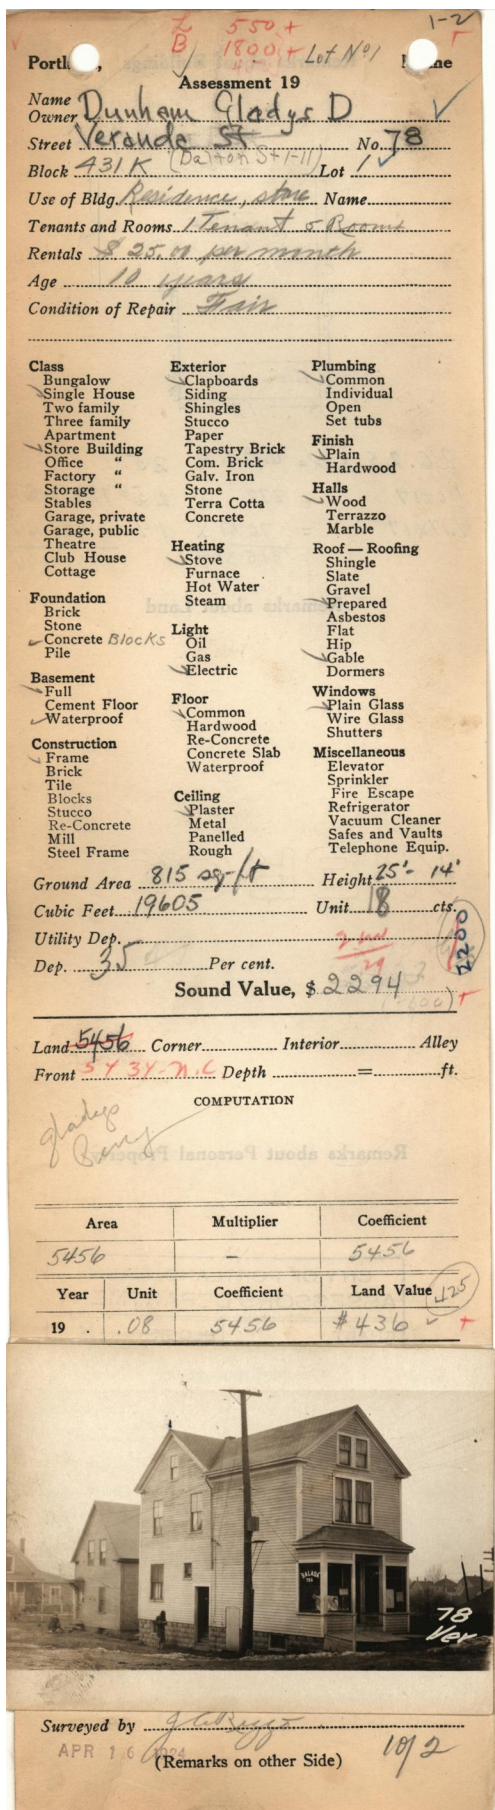 1-2
L 550 +
B 1800 + Lot No 1
Portl , ne
Assessment 19
Name
Owner Dunham Gladys D
Street Veranda St No. 78
Block 431K (Dalton St 1-11) Lot 1
Use of Bldg. Residence, store Name
Tenants and Rooms 1 Tenant 5 Rooms
Rentals $ 25.00 per month
Age 10 years
Condition of Repair Fair
Class
Bungalow
Single House
Two family
Three family
Apartment
Store Building
Office "
Factory "
Storage "
Stables
Garage, private
Garage, public
Theatre
Club House
Cottage
Foundation
Brick
Stone
Concrete Blocks
Pile
Basement
Full
Cement Floor
Waterproof
Construction
Frame
Brick
Tile
Blocks
Stucco
Re-Concrete
Mill
Steel Frame
Exterior
Clapboards
Siding
Shingles
Stucco
Paper
Tapestry Brick
Com. Brick
Galv. Iron
Stone
Terra Cotta
Concrete
Heating
Stove
Furnace
Hot Water
Steam
Light
Oil
Gas
Electric
Floor
Common
Hardwood
Re-Concrete
Concrete Slab
Waterproof
Ceiling
Plaster
Metal
Panelled
Rough
Plumbing
Common
Individual
Open
Set tubs
Finish
Plain
Hardwood
Halls
Wood
Terrazzo
Marble
Roof — Roofing
Shingle
Slate
Gravel
Prepared
Asbestos
Flat
Hip
Gable
Dormers
Windows
Plain Glass
Wire Glass
Shutters
Miscellaneous
Elevator
Sprinkler
Fire Escape
Refrigerator
Vacuum Cleaner
Safes and Vaults
Telephone Equip.
Ground Area 815 sq-ft Height 25'- 14'
Cubic Feet 19605 Unit 18 cts.
Utility Dep.
2200
Dep. 35 Per cent.
29
Sound Value, $ 2294
Land 5456 Corner Interior Alley
Front Depth = ft.
COMPUTATION
Gladys
Area Multiplier Coefficient
5456 - 5456
Year Unit Coefficient Land Value 425
19 . .08 5456 $436
SALADA
TEA
78
Ver
Surveyed by
APR 16 1924
(Remarks on other Side) 1 of 2